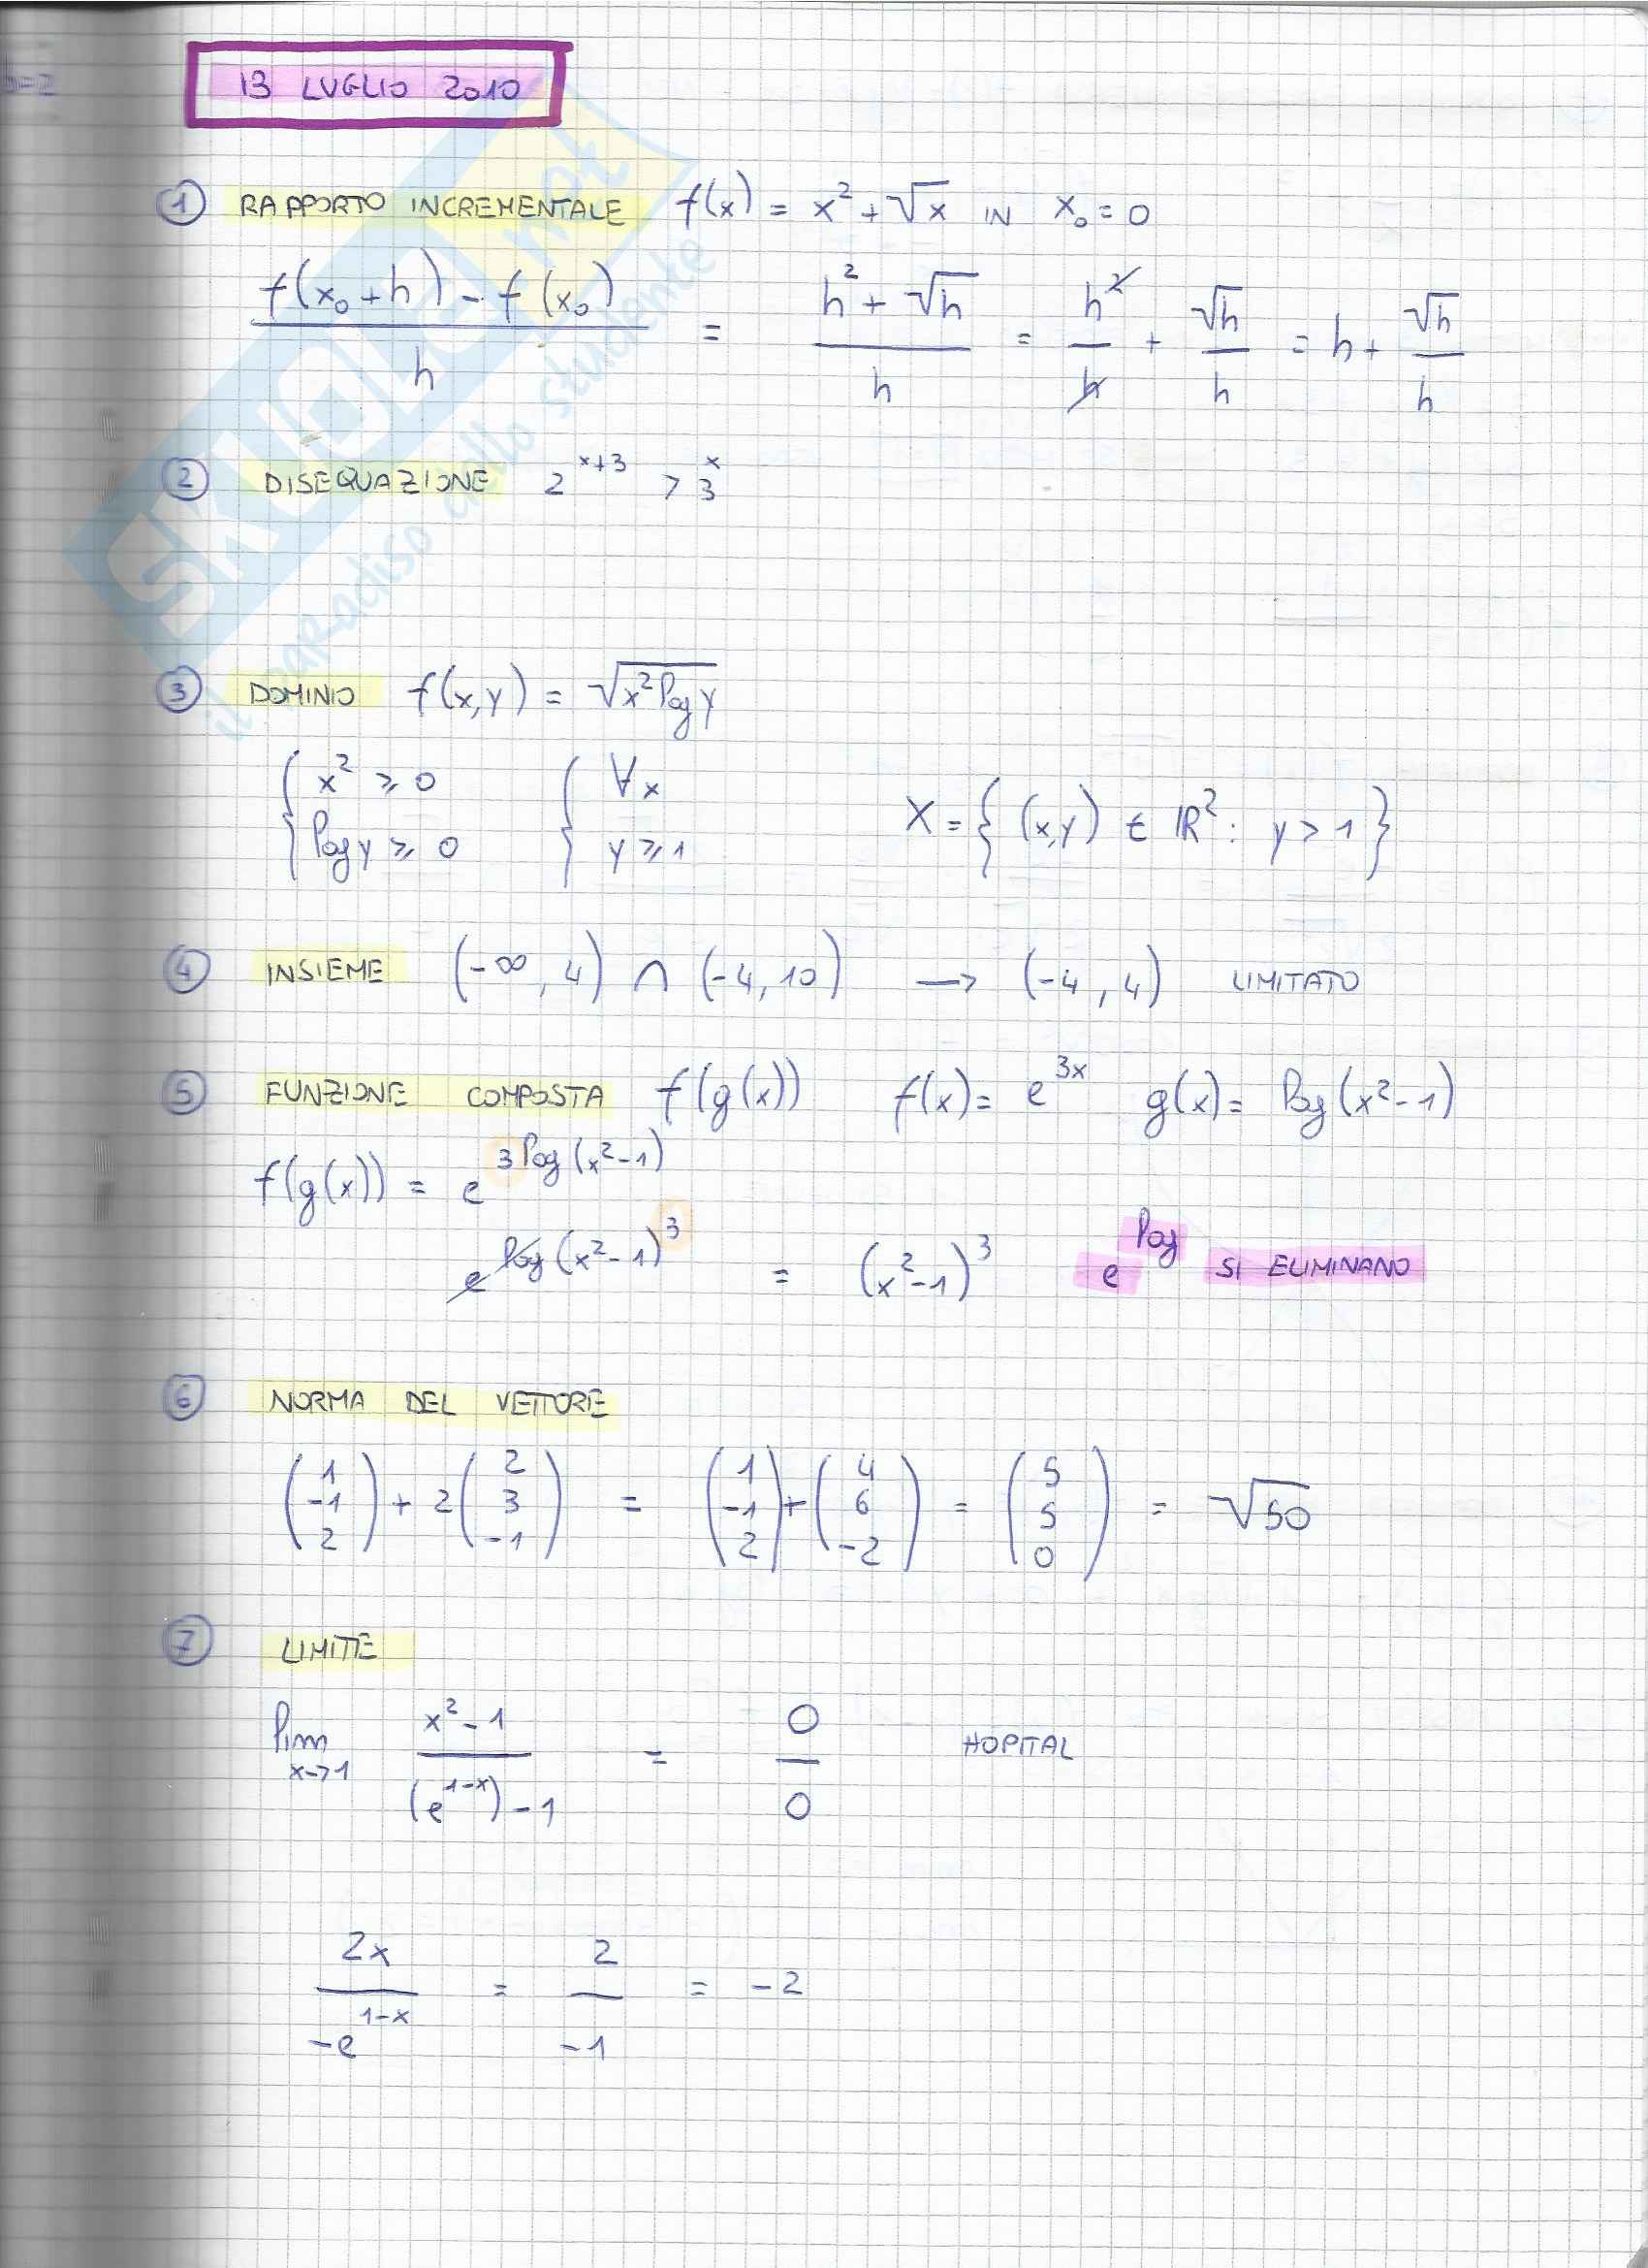 13 LUGLIO 2010
① RAPPORTO INCREMENTALE f(x) = x² + √x IN x₀ = 0
(f(x₀+h) - f(x₀))/h = (h² + √h)/h = h²/h + √h/h = h + √h/h
② DISEQUAZIONE 2^(x+3) > 3^x
③ DOMINIO f(x,y) = √(x² log y)
{ x² ⩾ 0 { ∀x
{ log y ⩾ 0 { y ⩾ 1 X = { (x,y) ∈ ℝ² : y > 1 }
④ INSIEME (-∞, 4) ∩ (-4, 10) → (-4, 4) LIMITATO
⑤ FUNZIONE COMPOSTA f(g(x)) f(x) = e^(3x) g(x) = log(x²-1)
f(g(x)) = e^(3log(x²-1))
e^(log(x²-1)³) = (x²-1)³ e^log SI ELIMINANO
⑥ NORMA DEL VETTORE
(1, -1, 2) + 2(2, 3, -1) = (1, -1, 2) + (4, 6, -2) = (5, 5, 0) = √50
⑦ LIMITE
lim x→1 (x²-1)/((e^(1-x))-1) = 0/0 HOPITAL
2x/(-e^(1-x)) = 2/-1 = -2
SKUOLA.net
il paradiso dello studente